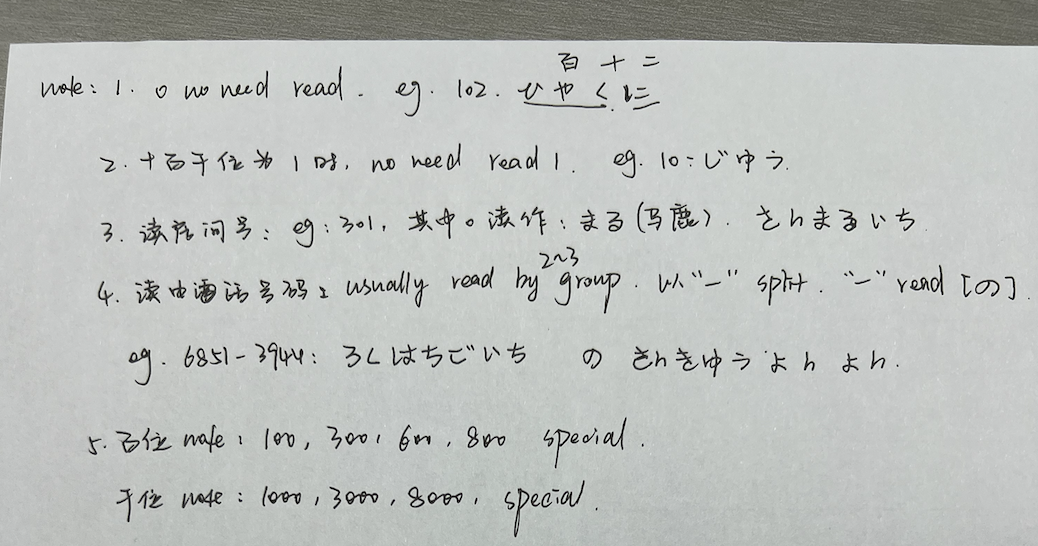 百 十 二
note: 1. 0 no need read. eg. 102. ひやく に
2. 十百千位为1时, no need read 1. eg. 10: じゆう.
3. 读房间号: eg: 301, 其中0读作: まる(马鹿). さんまるいち
4. 读电话号码: usually read by 2~3 group. 以"-" split. "-" read [の].
eg. 6851-3944: ろくはちごいち の さんきゆう よん よん.
5. 百位 note: 100, 300, 600, 800 special.
千位 note: 1000, 3000, 8000, special.